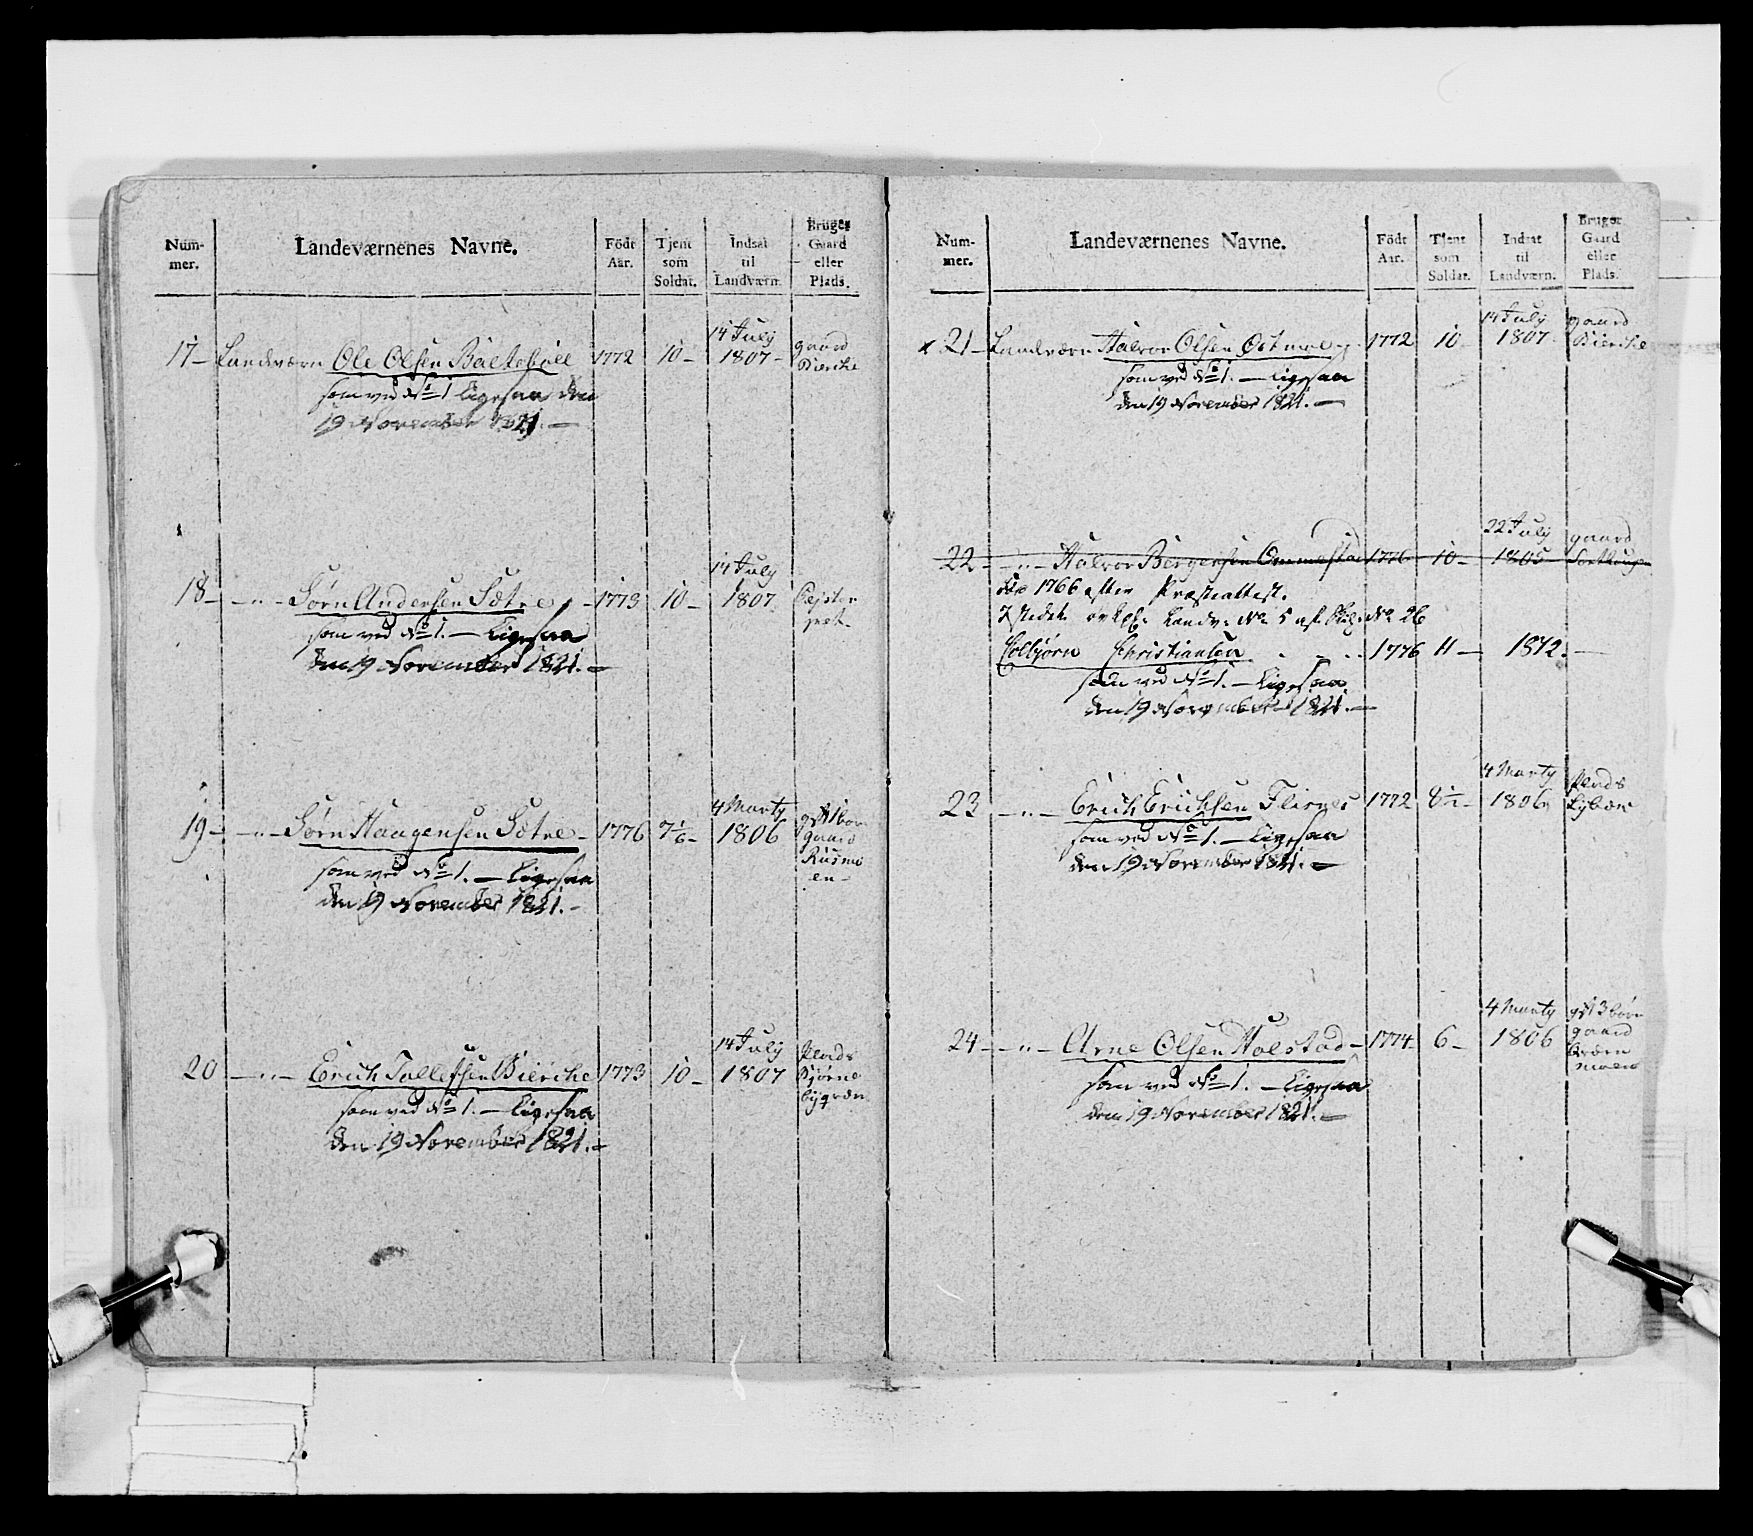 Num-
mer.
Landeværnenes Navne.
Födt
Aar.
Tjent
som
Soldat.
Indsat
til
Landværn.
Bruger
Gaard
eller
Plads.
17 – Landværn Ole Olsen 1772 10 – 14 July 1807 – gaard Bierche
som ved No 1 Ligesaa den
19 November 1821. –
18 – – " – Sørn Andersen Sætre – 1773 10 – 14 July 1807.
som ved No 1. – Ligesaa
den 19 November 1821. –
19 – – " – Sørn Haagensen Sætre – 1776 7 1/6 – 4 Marty 1806 gaard
som ved No 1. – Ligesaa
den 19 November 1821. –
20 – " – Erich Tollefsen Bierche 1773 10 – 14 July 1807 Plads
som ved No 1. – Ligesaa
den 19 November 1821. –
Num-
mer.
Landeværnenes Navne.
Födt
Aar.
Tjent
som
Soldat.
Indsat
til
Landværn.
Bruger
Gaard
eller
Plads.
x 21 – Landværn Halvor Olsen 1772 10 – 14 July 1807 – gaard Bierche
som ved No 1. – Ligesaa
den 19 November 1821. –
22 – – " – Halvor Bergersen Ommestad 1776 10 – 22 July 1805 gaard
1766 efter Præsteattest.
I stedet Landv. No 5 af No 26
Colbjørn Christiansen 1776 11 – 1812. –
som ved No 1. – Ligesaa
den 19 November 1821. –
23 – " – Erich Erichsen Flisnes 1772 8 1/2 – 4 Marty 1806 Plads
som ved No 1. – Ligesaa
den 19 November 1821. –
24 – – " – Arne Olsen Holstad – 1774 6 – 4 Marty 1806 gift 3 børn gaard
som ved No 1. – Ligesaa
den 19 November 1821. –